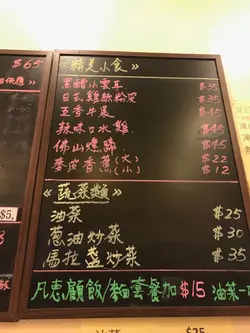 $65
《精美小食》
黑醋小雲耳 $35
日式雞絲粉皮 $35
五香牛展 $45
辣味口水雞 $45
佛山燻蹄 $45
麥皮香蕉(大) $22
(小) $12
《蔬菜類》
油菜 $25
蔥油炒菜 $30
馬拉盞炒菜 $35
凡惠顧飯/麵套餐加 $15 油菜一
$5.
油菜 $25